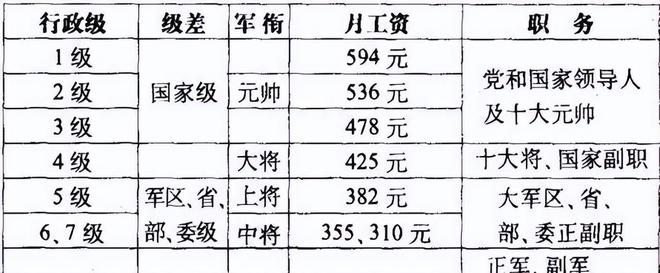 行政级 级差 军衔 月工资 职务
1级 594元
2级 国家级 元帅 536元 党和国家领导人
3级 478元 及十大元帅
4级 大将 425元 十大将、国家副职
5级 军区、省、 上将 382元 大军区、省、
6、7级 部、委级 中将 355、310元 部、委正副职
正军、副军